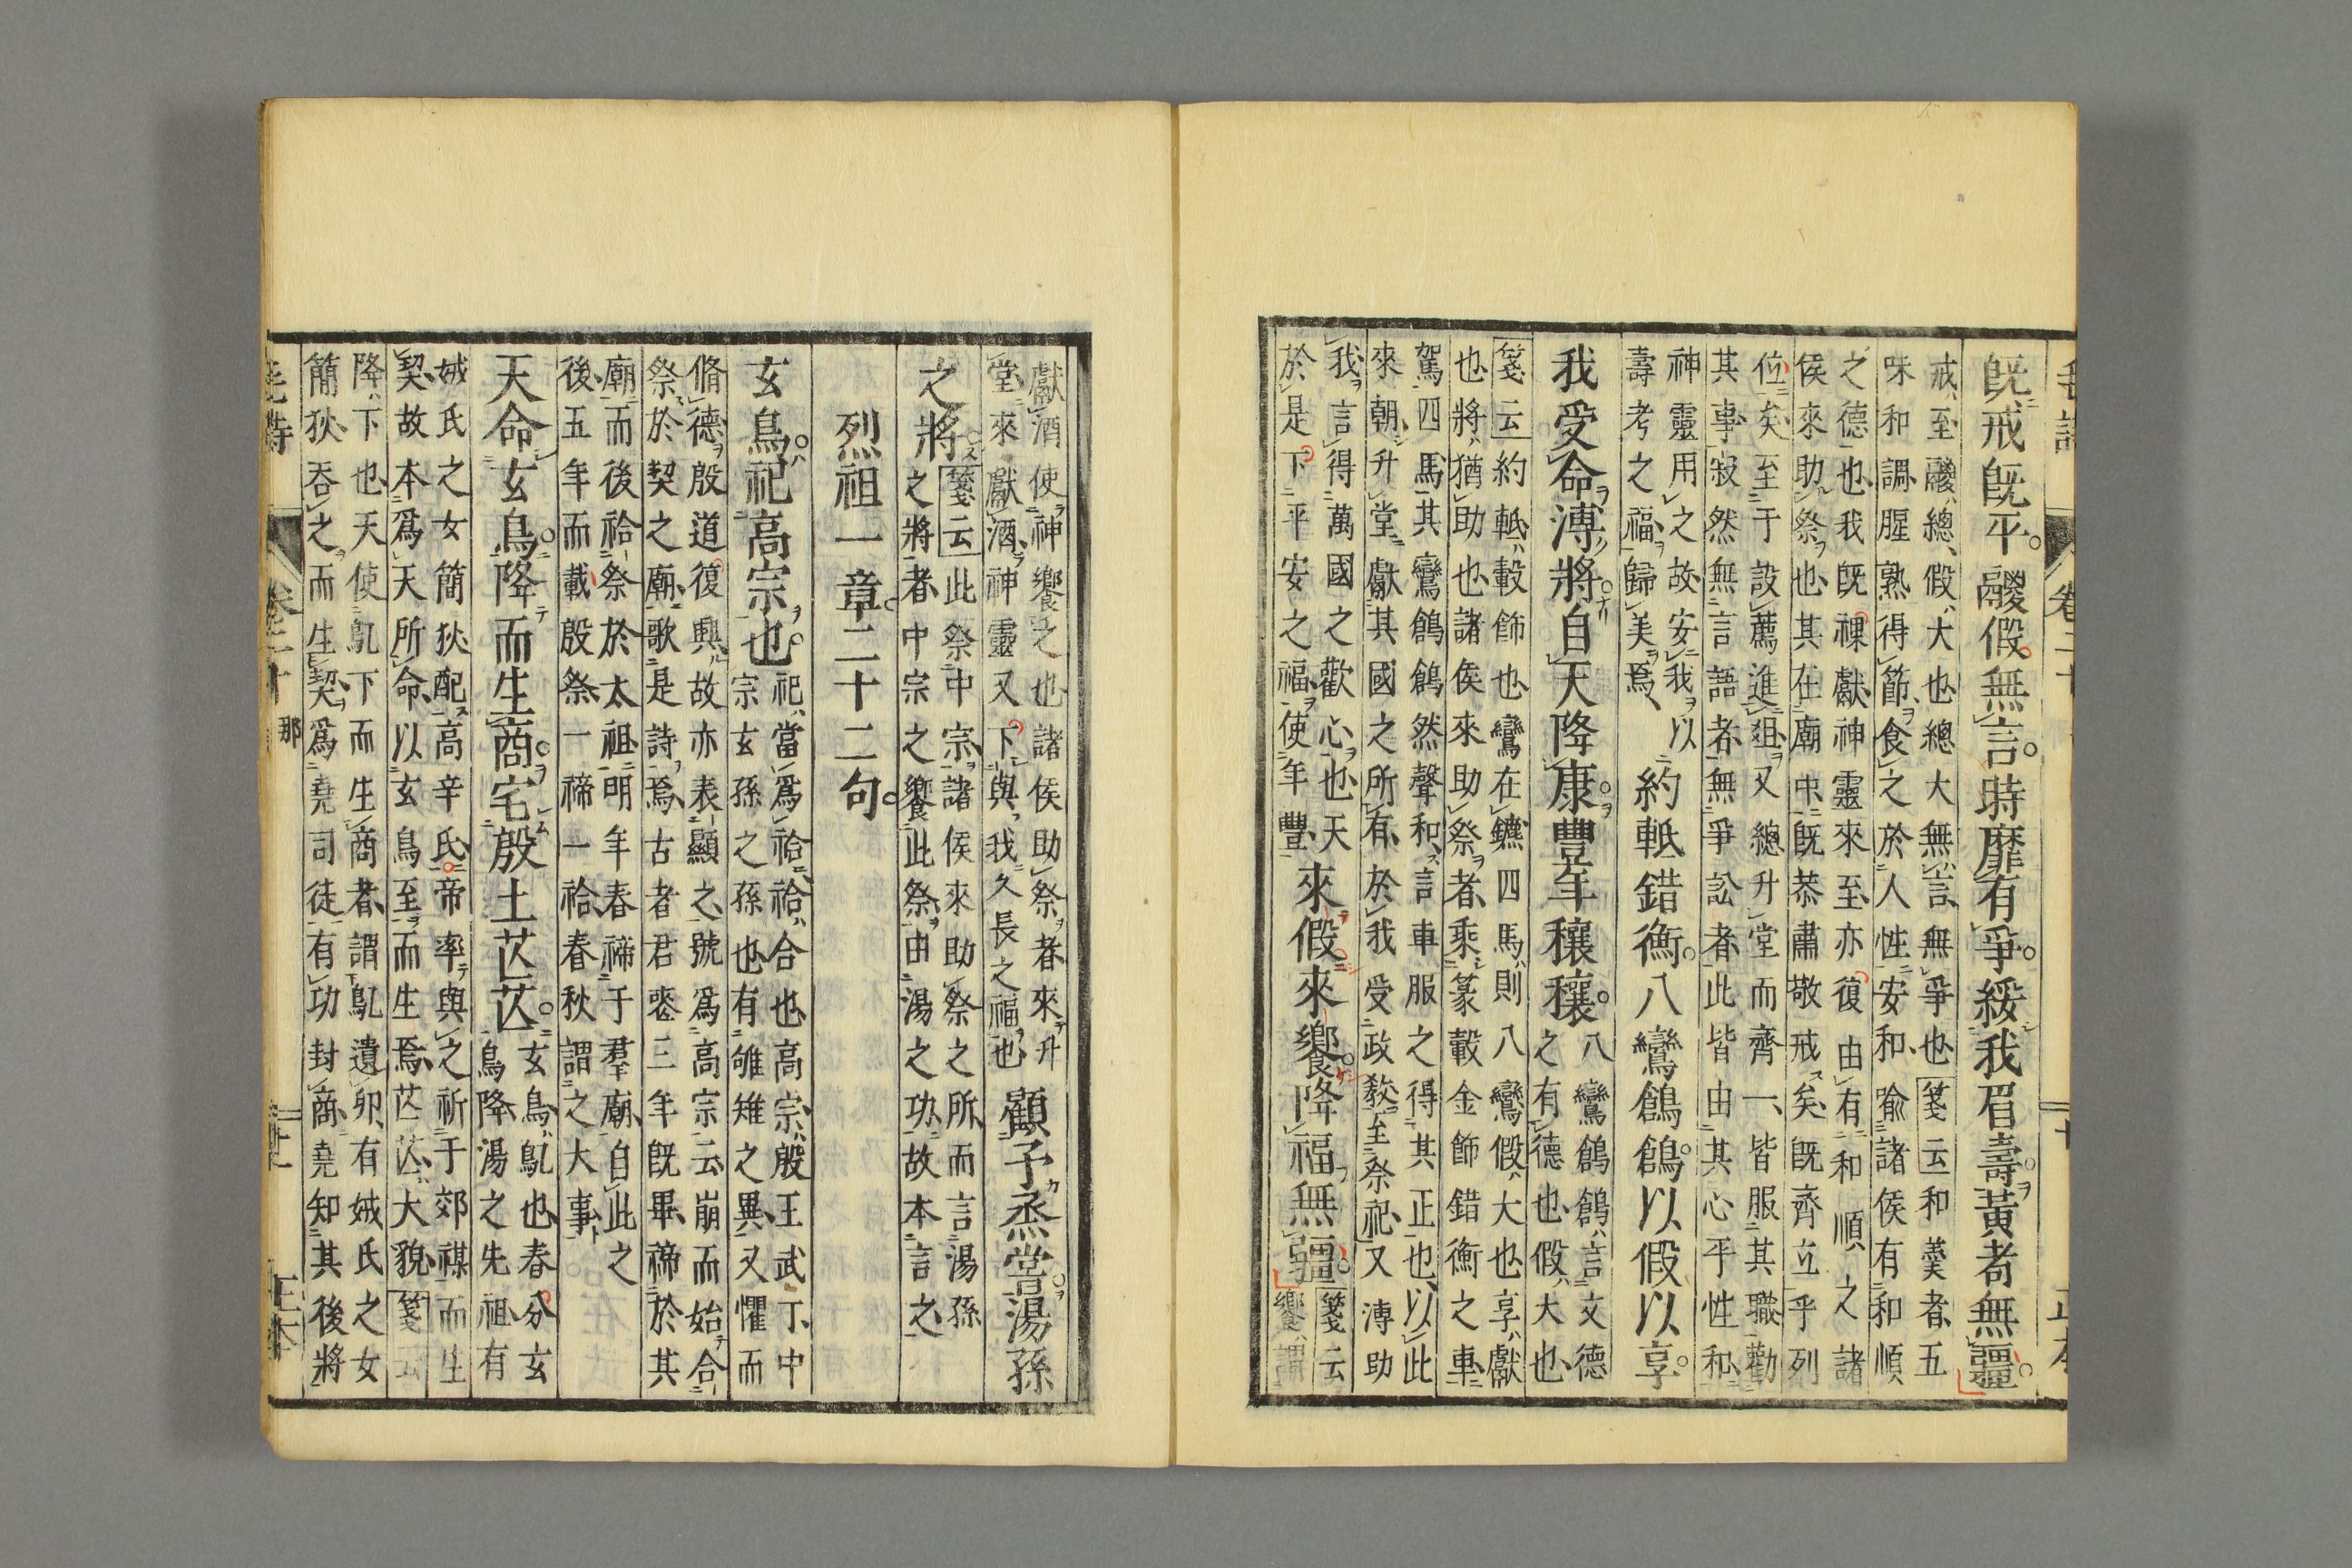 毛詩 卷二十
既戒既平鬷假無言時靡有爭綏我眉壽黃耇無疆
戒至鬷總假大也總大無言無爭也箋云和羹者五
味和調腥熟得節食之於人性安和喻諸侯有和順
之德也我既祼獻神靈來至亦復由有和順之諸
侯來助祭也其在廟中既恭肅敬戒矣既齊立乎列
位矣至于設薦進俎又總升堂而齊一皆服其職勸
其事寂然無言語者無爭訟者此皆由其心平性和
神靈用之故安我以
壽考之福歸美焉
約軧錯衡八鸞鶬鶬以假以享
我受命溥將自天降康豐年穰穰
八鸞鶬鶬言文德
之有德也假大也
箋云約軧轂飾也鸞在鑣四馬則八鸞假大也享獻
也將猶助也諸侯來助祭者乘篆轂金飾錯衡之車
駕四馬其鸞鶬鶬然聲和言車服之得其正也以此
來朝升堂獻其國之所有於我受政教至祭祀又溥助
我言得萬國之歡心也天
於是下平安之福使年豐
來假來饗降福無疆
箋云
饗謂
獻酒使神饗之也諸侯助祭者來升
堂來獻酒神靈又下與我久長之福也
顧予烝嘗湯孫
之將
箋云此祭中宗諸侯來助祭之所而言湯孫
之將者中宗之饗此祭由湯之功故本言之
烈祖一章二十二句
玄鳥祀高宗也
祀當爲祫祫合也高宗殷王武丁中
宗玄孫之孫也有雊雉之異又懼而
脩德殷道復興故亦表顯之號爲高宗云崩而始合
祭於契之廟歌是詩焉古者君喪三年既畢禘於其
廟而後祫祭於太祖明年春禘于羣廟自此之
後五年而載殷祭一禘一祫春秋謂之大事
天命玄鳥降而生商宅殷土芒芒
玄鳥鳦也春分玄
鳥降湯之先祖有
娀氏之女簡狄配高辛氏帝率與之祈于郊禖而生
契故本爲天所命以玄鳥至而生焉芒芒大貌箋云
降下也天使鳦下而生商者謂鳦遺卵有娀氏之女
簡狄吞之而生契爲堯司徒有功封商堯知其後將
毛詩 卷二十 那 十一